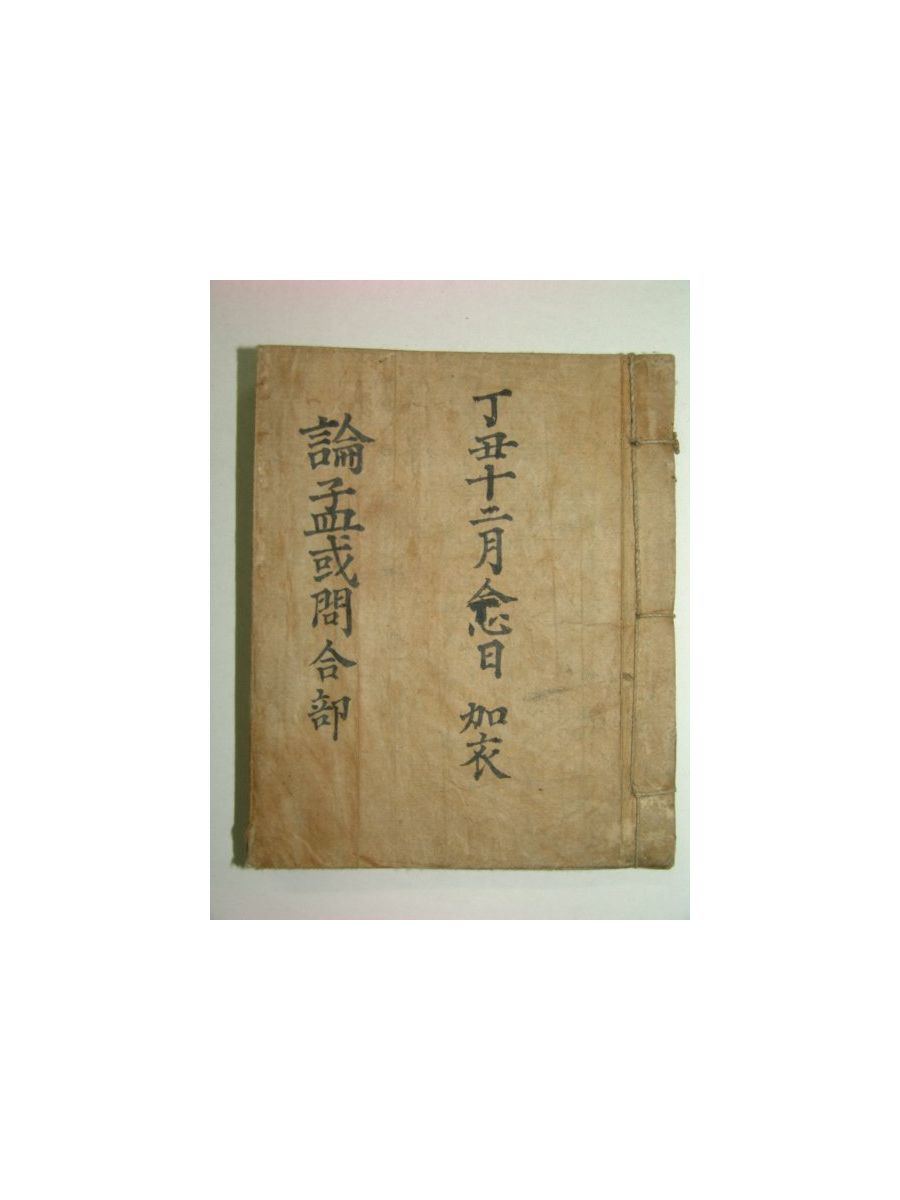 丁丑十二月念日 加衣
論孟或問合部